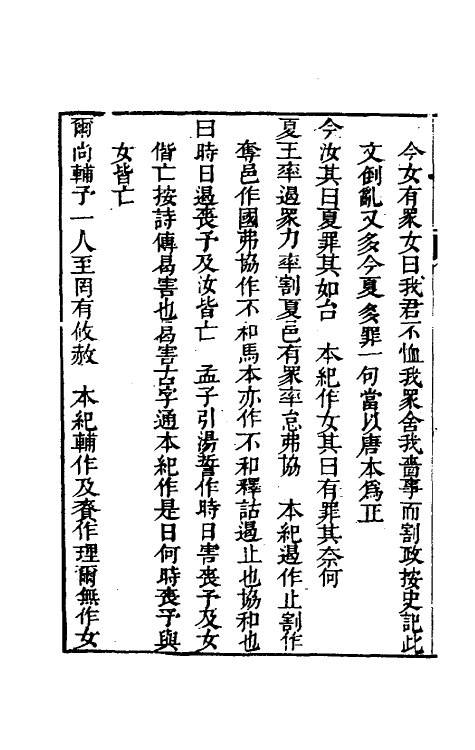 今女有衆女曰我君不恤我衆舍我嗇事而割政按史記此
文倒亂又多今夏多罪一句當以唐本爲正
今汝其曰夏罪其如台　本紀作女其曰有罪其奈何
夏王率遏衆力率割夏邑有衆率怠弗協　本紀遏作止割作
奪邑作國弗協作不和馬本亦作不和釋詁遏止也協和也
曰時日曷喪予及汝皆亡　孟子引湯誓作時日害喪予及女
偕亡按詩傳曷害也曷害古字通本紀作是日何時喪予與
女皆亡
爾尚輔予一人至罔有攸赦　本紀輔作及賚作理爾無作女